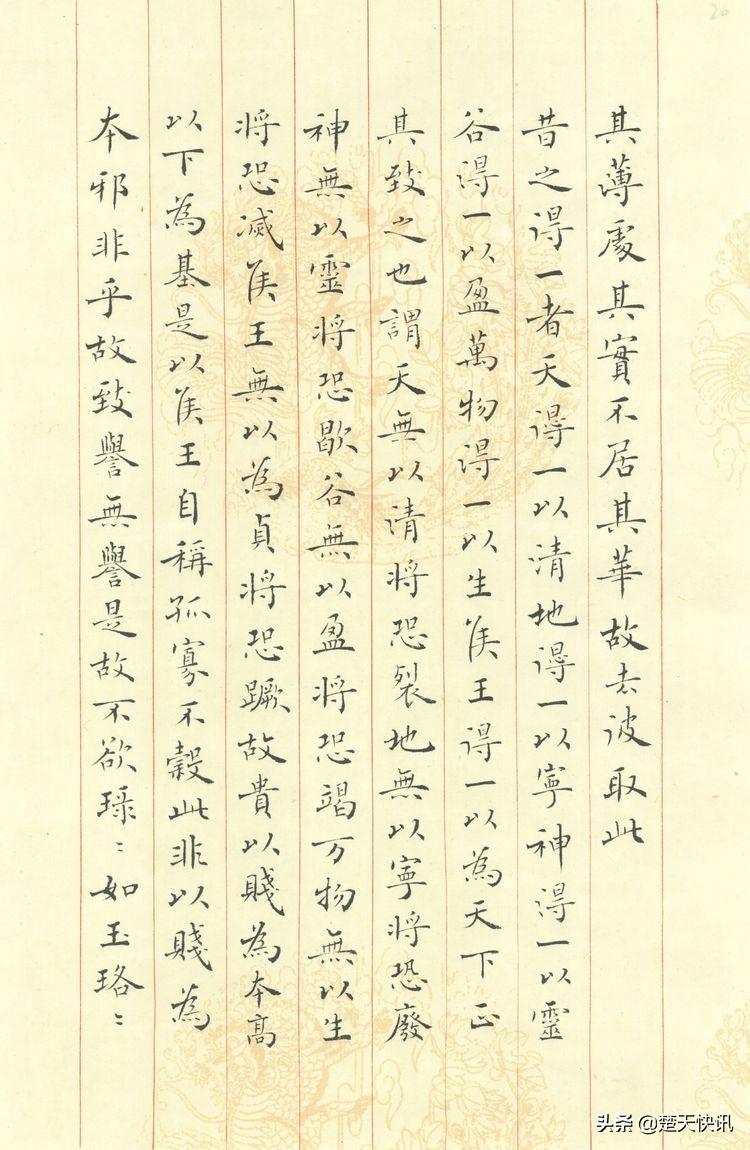 20
其薄處其實不居其華故去彼取此
昔之得一者天得一以清地得一以寧神得一以靈
谷得一以盈萬物得一以生侯王得一以為天下正
其致之也謂天無以清將恐裂地無以寧將恐廢
神無以靈將恐歇谷無以盈將恐竭万物無以生
將恐滅侯王無以為貞將恐蹶故貴以賤為本高
以下為基是以侯王自稱孤寡不穀此非以賤為
本邪非乎故致譽無譽是故不欲琭〻如玉珞〻
头条 @楚天快讯